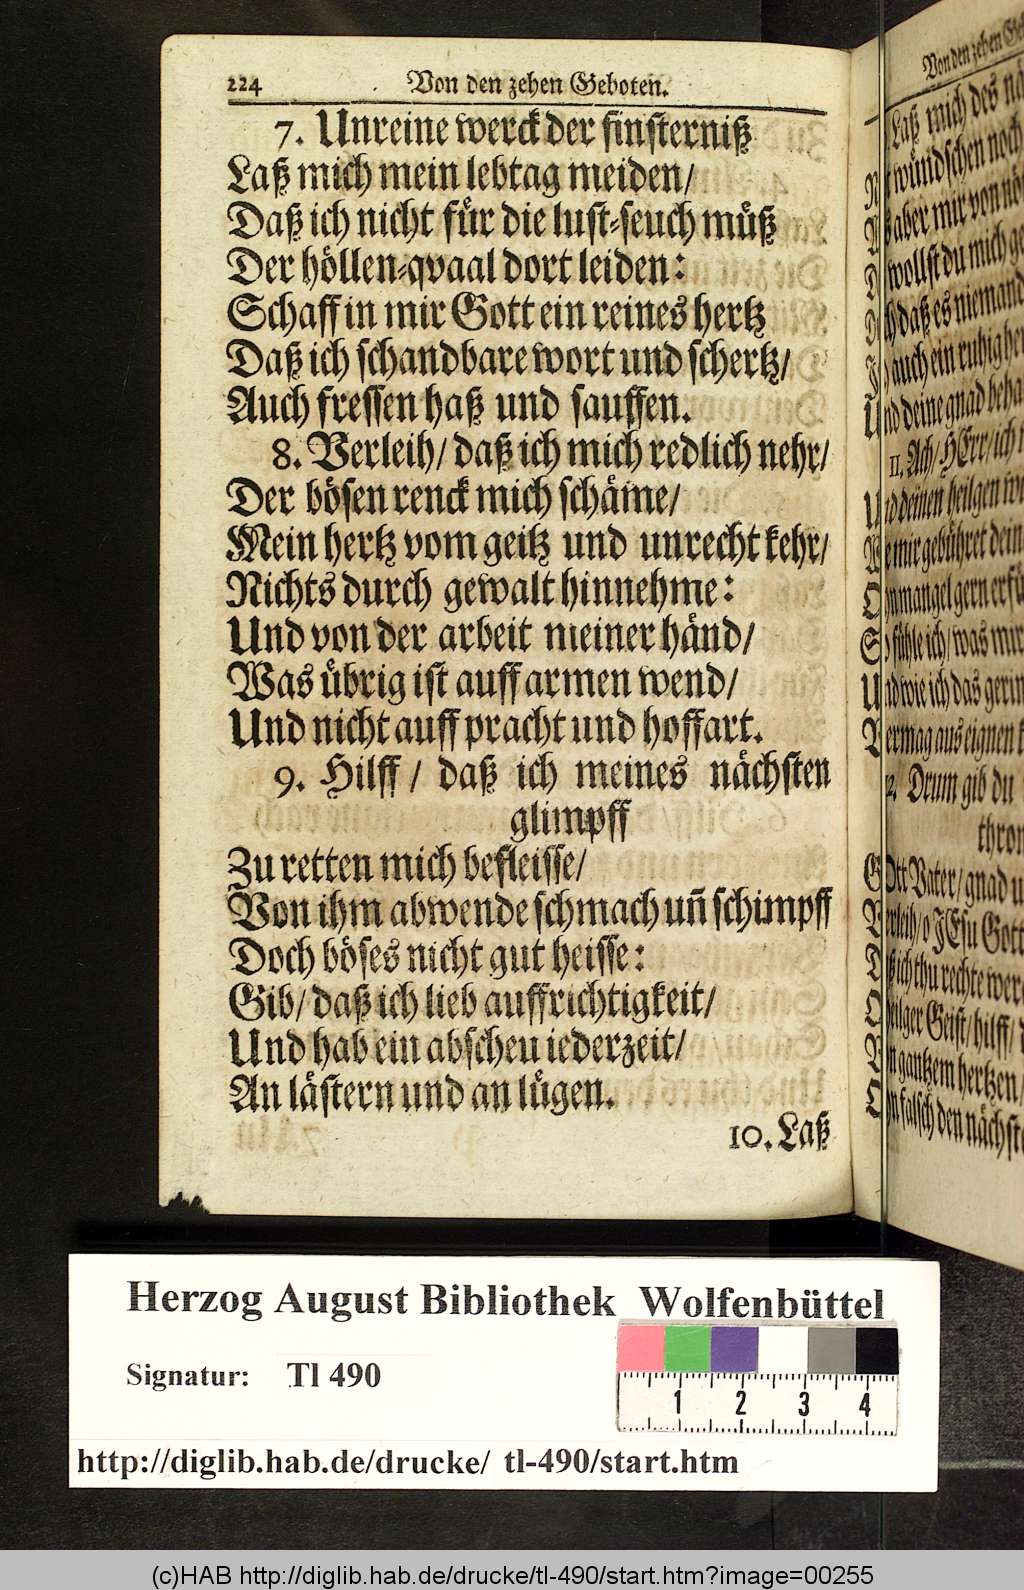 224 Von den zehen Geboten.
7. Unreine werck der finsterniß
Laß mich mein lebtag meiden/
Daß ich nicht für die lust-seuch müß
Der höllen-qvaal dort leiden:
Schaff in mir Gott ein reines hertz
Daß ich schandbare wort und schertz/
Auch fressen haß und sauffen.
8. Verleih/ daß ich mich redlich nehr/
Der bösen renck mich schäme/
Mein hertz vom geitz und unrecht kehr/
Nichts durch gewalt hinnehme:
Und von der arbeit meiner händ/
Was übrig ist auff armen wend/
Und nicht auff pracht und hoffart.
9. Hilff/ daß ich meines nächsten
glimpff
Zu retten mich befleisse/
Von ihm abwende schmach uñ schimpff
Doch böses nicht gut heisse:
Gib/ daß ich lieb auffrichtigkeit/
Und hab ein abscheu iederzeit/
An lästern und an lügen.
10. Laß
Von den zehen
Laß mich des
wündschen noch
aber mir von
wollst du mich
daß es niemand
auch ein ruhig
Und deine gnad
11. Ach/ HErr/ ich
Und deinen heilgen
mir gebühret dein
mangel gern
fühle ich/ was mir
Und wie ich das
Vermag aus eignen
Drum gib du
GOtt Vater/ gnad
Verleih/ o JEsu Gott
ich thu rechte
Heilger Geist/ hilff/
gantzem hertzen/
falsch den
Herzog August Bibliothek Wolfenbüttel
Signatur: Tl 490
1 2 3 4
http://diglib.hab.de/drucke/ tl-490/start.htm
(c)HAB http://diglib.hab.de/drucke/tl-490/start.htm?image=00255